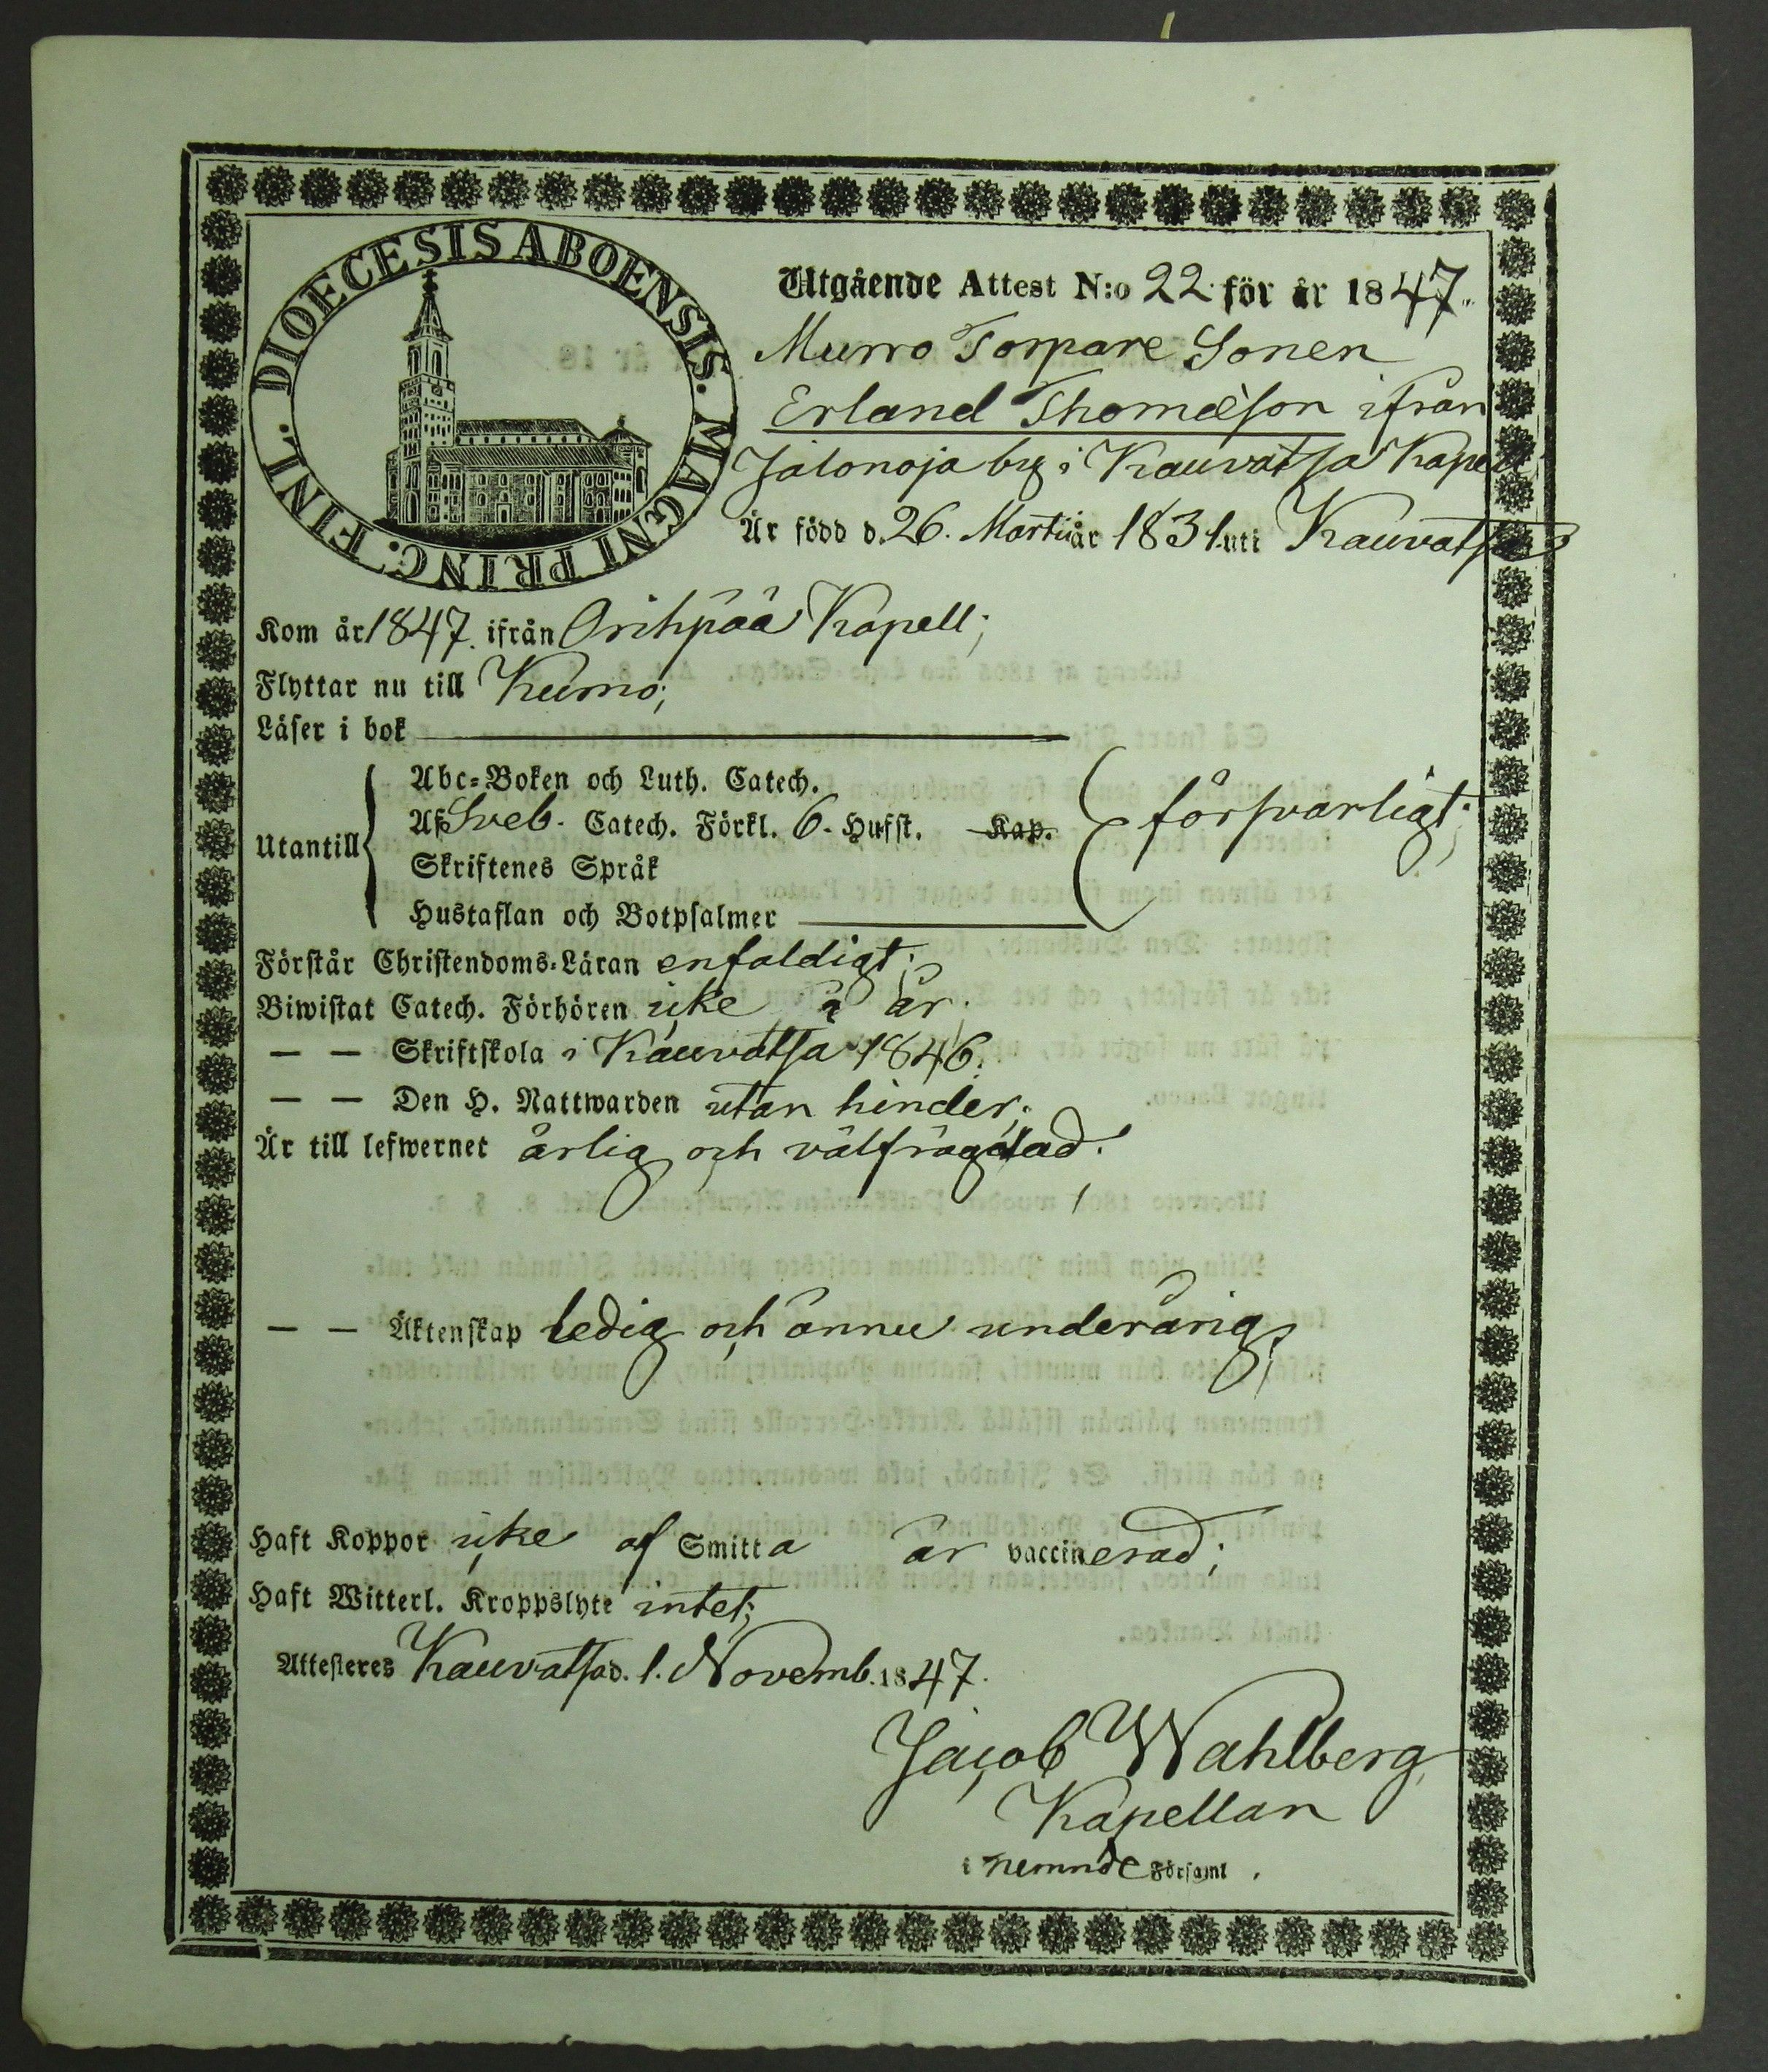 DIOECESIS ABOENSIS. MAGNI PRINC. FINL.
Utgående Attest N:o 22 för år 1847.
Murro Torpare Sonen
Erland Thomæson ifrån
Jalonoja by i Kauvatsa Kapell
Är född d. 26. Martii år 1831 uti Kauvatsa
Kom år 1847. ifrån Orihpää Kapell;
Flyttar nu till Kumo;
Läser i bok
Utantill
Abc-Boken och Luth. Catech.
Af Sveb. Catech. Förkl. 6. Hufst. Kap.
försvarligt;
Skriftenes Språk
Hustaflan och Botpsalmer
Förstår Christendoms-Läran enfaldigt;
Biwistat Catech. Förhören icke i år;
— — Skriftskola i Kauvatsa 1846;
— — Den H. Nattwarden utan hinder;
Är till lefwernet ärlig och välfrägdad;
— — Äktenskap ledig och ännu underårig;
Haft Koppor icke af Smitta är vaccinerad;
Haft Witterl. Kroppslyte intet;
Attesteres Kauvatsa d. 1. Novemb. 1847.
Jacob Wahlberg
Kapellan
i nemnde Församl.